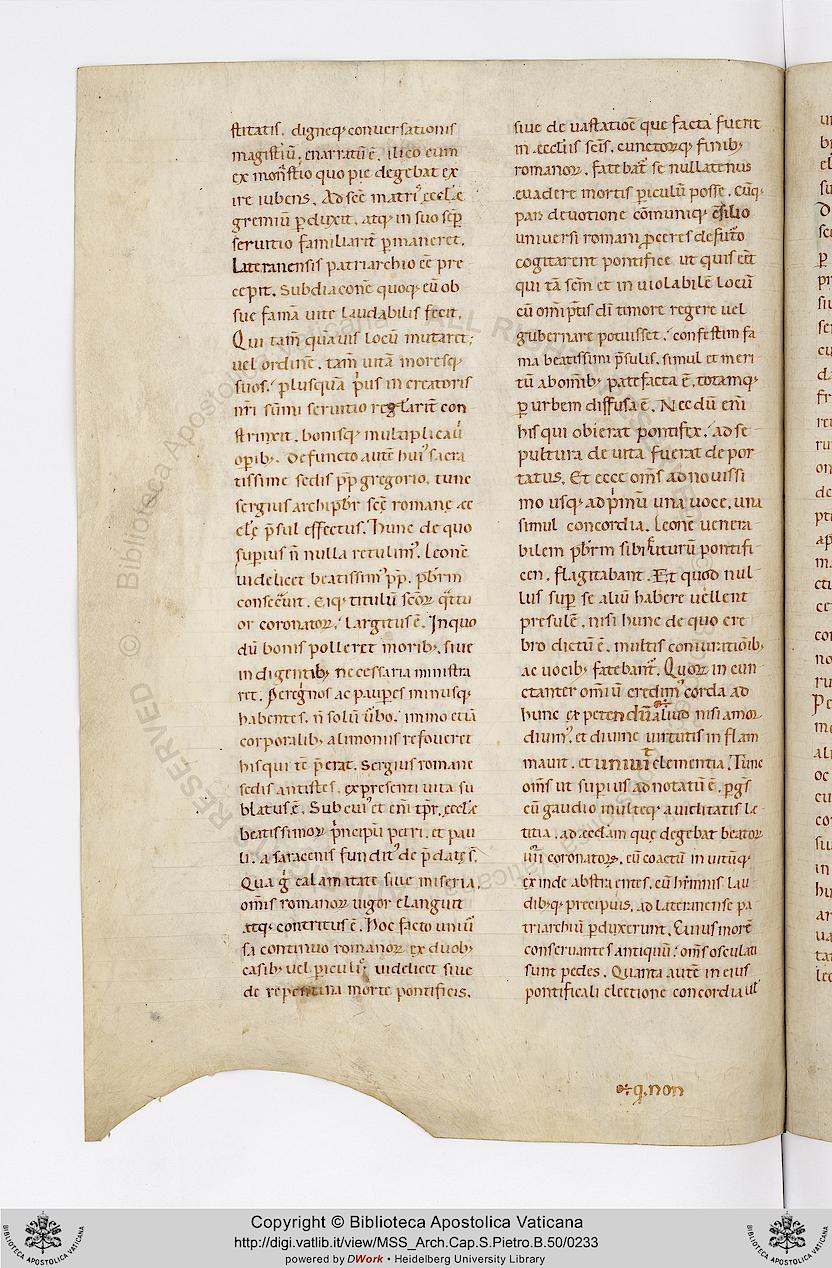 stitatis. digneq; conuersationis
magistiū. enarratū ē. ilico eum
ex monstio quo pie degebat ex
ire iubens. Ad scē matris ęcclę
gremiū pduxit. atq; in suo sep
seruitio familiarit pmaneret.
Lateranensis patriarchio eē pre
cepit. Subdiaconē quoq; eū ob
suę famā uite laudabilis fecit.
Qui tam quāuis locū mutaret;
uel ordinē. tam uitā moresq;
suos. plusquā prius in creatoris
nri sūmi seruitio reglarit con
strinxit. bonisq; multiplicauit
opib;. Defuncto autē hui sacra
tissime sedis pp gregorio. tunc
sergius archipbr scē romane ęc
clę psul effectus. Hunc de quo
superius n nulla retulim. Leonē
uidelicet beatissim pp. pbrm
consecrunt. Eiq; titulū scōr qttu
or coronator. largitus ē. In quo
dū bonis polleret morib;. siue
indigentib; necessaria ministra
ret. Peregnos ac paupes minusq;
habentes. n solū ūbo. immo etiā
corporalib; alimoniis refoueret
hisqui tē perat. Sergius romane
sedis antistes. ex presenti uita su
blatus ē. Sub cui et eni tpr. ecclę
beatissimor principū petri. et pau
li. a saracenis fundit deprdatę s̄.
Qua g calamitate siue miseria.
omīs romanor uigor elanguit
atq; contritus ē. Hoc facto uniuer
sa continuo romanor ex duob;
casib; uel piculis; uidelicet siue
de repentina morte pontificis.
siue de uastatioē que facta fuerit
in ęccliis scīs. cunctorq; finib;
romanor. fatebat se nullatenus
euadere mortis piculū posse. Cūq;
pari deuotione cōmuniq; csilio
uniuersi romani proceres defuto
cogitarent pontifice ut quis eēt
qui tā scm et in uiolabile locū
cū omiptis di timore regere uel
gubernare potuisset. confestim fa
ma beatissimi psulis. simul et meri
tū abomib; patefacta ē. totamq;
p urbem diffusa ē. Necdū eni
his qui obierat pontifex. ad se
pultura de uita fuerat depor
tatus. Et ecce omīs ad nouissi
mo usq; ad primū una uoce. una
simul concordia. Leonē uenera
bilem pbrm sibi futurū pontifi
cem. flagitabant. Et quod nul
lus sup se aliū habere uellent
presulē. nisi hunc de quo cre
bro dictū ē. multis coniurationib;
ac uocib; fatebant. Quor in cun
ctanter omiū credim corda ad
hunc expetendū aliud nisi amor
diuin. et diuine uirtutis inflam
mauit. et uniuit clementia. Tunc
omīs ut superius adnotatū ē. pgs
cū gaudio multeq; auiditatis le
titia. ad ęcclam que degebat beator
iiii coronator. cū coactū inuitūq;
exinde abstraentes. cū hymnis lau
dibq; precipuis. ad lateranense pa
triarchiū pduxerunt. Cuius morē
conseruantes antiquū. omīs osculati
sunt pedes. Quanta autē in eius
pontificali electione concordia ul
q. non
Copyright © Biblioteca Apostolica Vaticana
http://digi.vatlib.it/view/MSS_Arch.Cap.S.Pietro.B.50/0233
powered by DWork • Heidelberg University Library